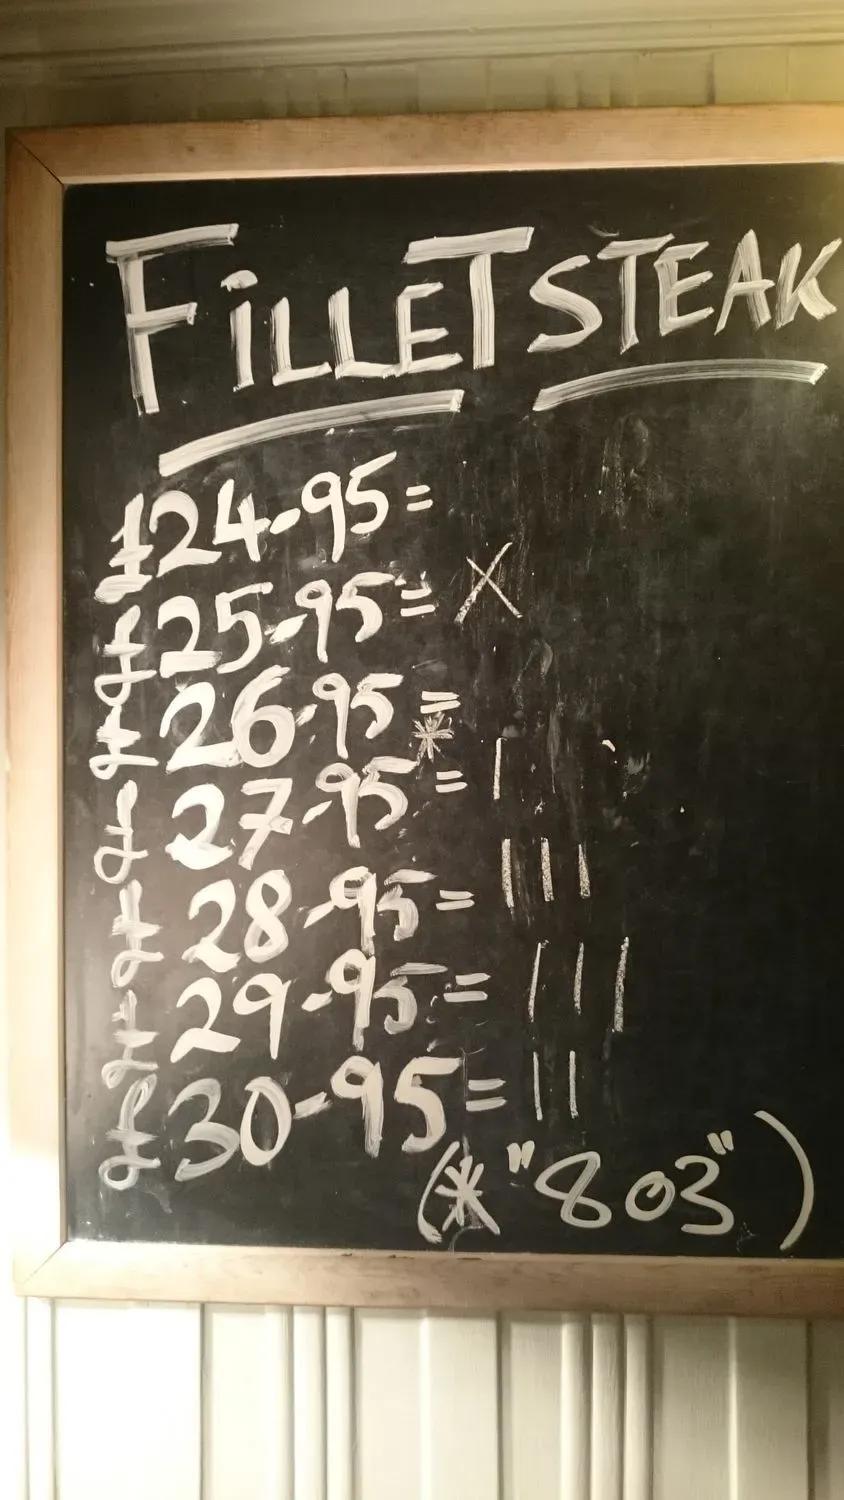 FiLLET STEAK
£24-95=
£25-95= X
£26-95=
£27-95* = |
£28-95= | | |
£29-95= | | |
£30-95= | |
(* "8oz")